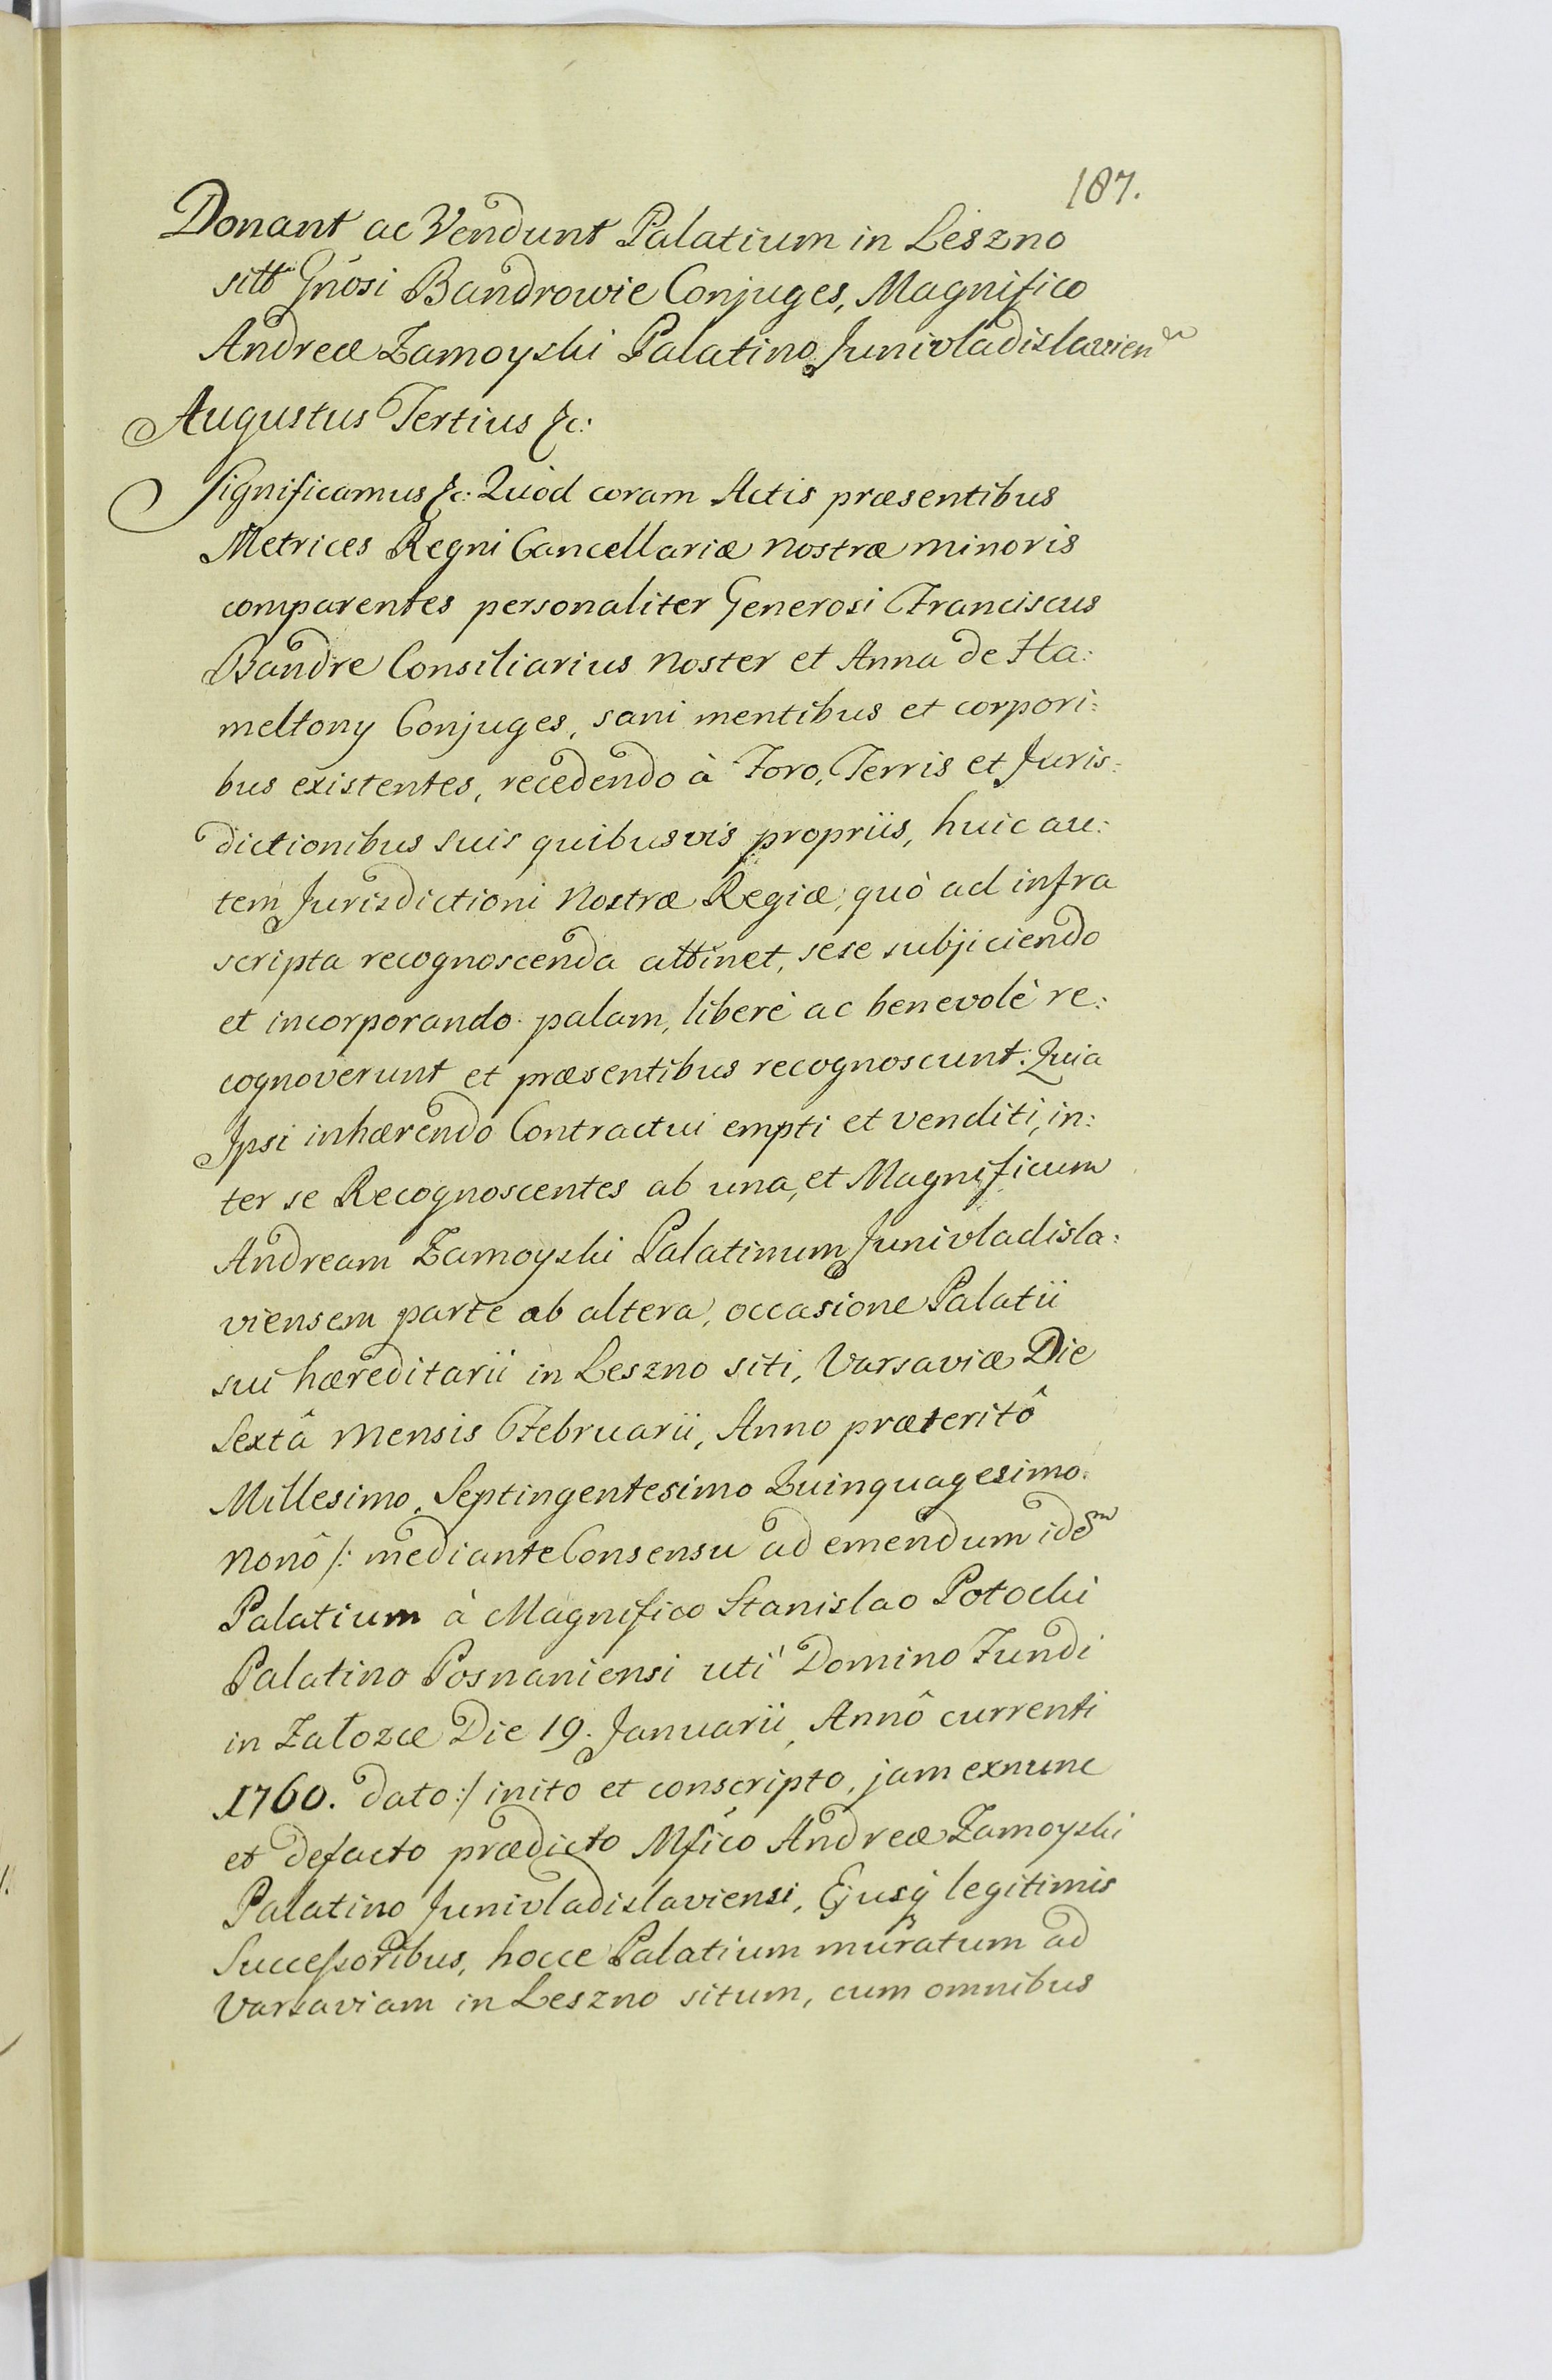 187.
Donant ac Vendunt Palatium in Leszno
sitt Gnosi Bandrowie Conjuges, Magnifico
Andreæ Zamoyski Palatino Junivladislavien
Augustus Tertius &c:
Significamus &c: Quòd coram Actis præsentibus
Metrices Regni Cancellariæ nostræ minoris
comparentes personaliter Generosi Franciscus
Bandre Consiliarius noster et Anna de Ha:
meltony Conjuges, sani mentibus et corpori:
bus existentes, recedendo à Foro, Terris et Juris:
dictionibus suis quibusvis propriis, huic au:
tem Jurisdictioni Nostræ Regiæ, quò ad infra
scripta recognoscenda attinet, sese subjiciendo
et incorporando palam, liberè ac benevolè re:
cognoverunt et præsentibus recognoscunt: Quia
Ipsi inhærendo Contractui empti et venditi, in:
ter se Recognoscentes ab una, et Magnificum
Andream Zamoyski Palatinum Junivladisla:
viensem parte ab altera, occasione Palatii
sui hæreditarii in Leszno siti, Varsaviæ Die
Sextâ mensis Februarii, Anno præteritô
Millesimo, Septingentesimo Quinquagesimo
nonô /: mediante Consensu ad emendum idem
Palatium à Magnifico Stanislao Potocki
Palatino Posnaniensi uti Domino Fundi
in Załozce Die 19. Januarii, Annô currenti
1760. dato :/ inito et conscripto, jam exnunc
et defacto prædicto Mfico Andreæ Zamoyski
Palatino Junivladislaviensi, Ejusq legitimis
Successoribus, hocce Palatium muratum ad
Varsaviam in Leszno situm, cum omnibus